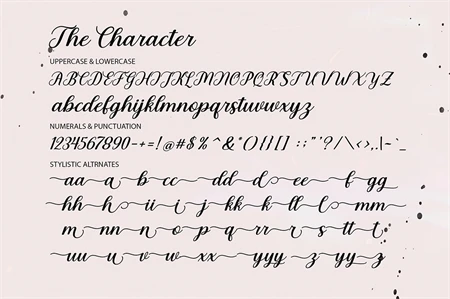 The Character
UPPERCASE & LOWERCASE
ABCDEFGHIJKLMNOPQRSTUVWXYZ
abcdefghijklmnopqrstuvwxyz
NUMERALS & PUNCTUATION
1234567890-+=!@#$%^&*O{}[] :;"'?/\<>,.|~`_
STYLISTIC ALTRNATES
aa a b cc dd d ee e f gg
hh h ii i j kk k ll l mm m
n nn n o p q rr r s tt t
uu u v w x yyy y zz z